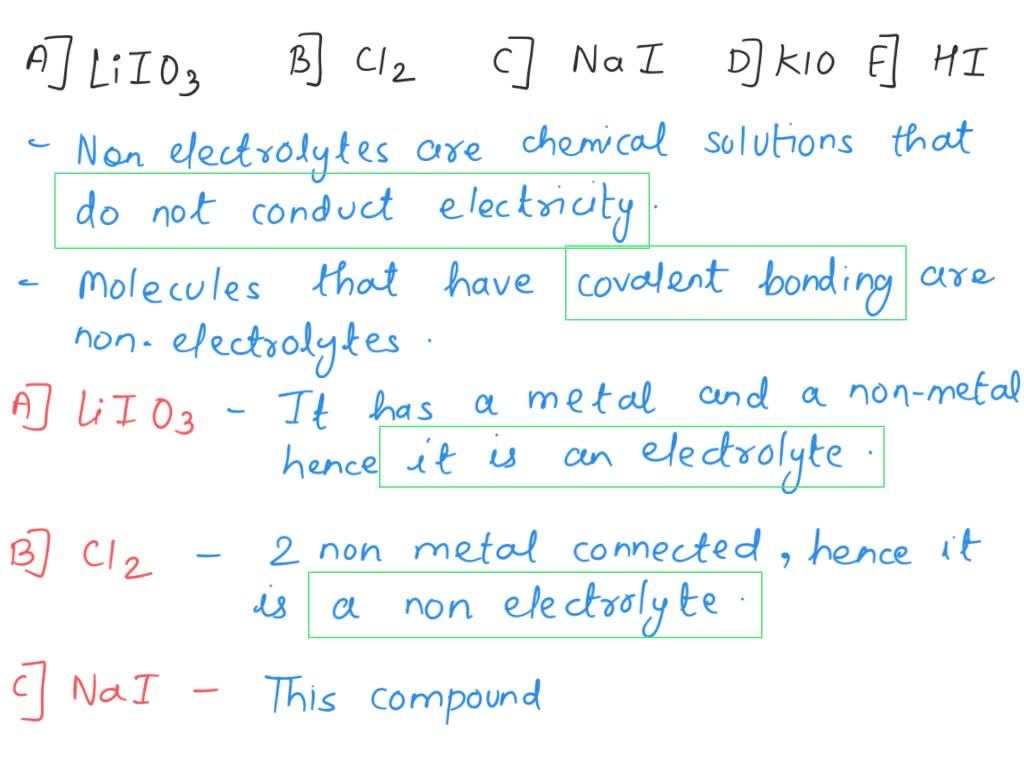 A] LiIO3 B] Cl2 C] NaI D] KIO E] HI
- Non electrolytes are chemical solutions that
do not conduct electricity.
- Molecules that have covalent bonding are
non-electrolytes.
A] LiIO3 - It has a metal and a non-metal
hence it is an electrolyte.
B] Cl2 - 2 non metal connected, hence it
is a non electrolyte.
C] NaI - This compound